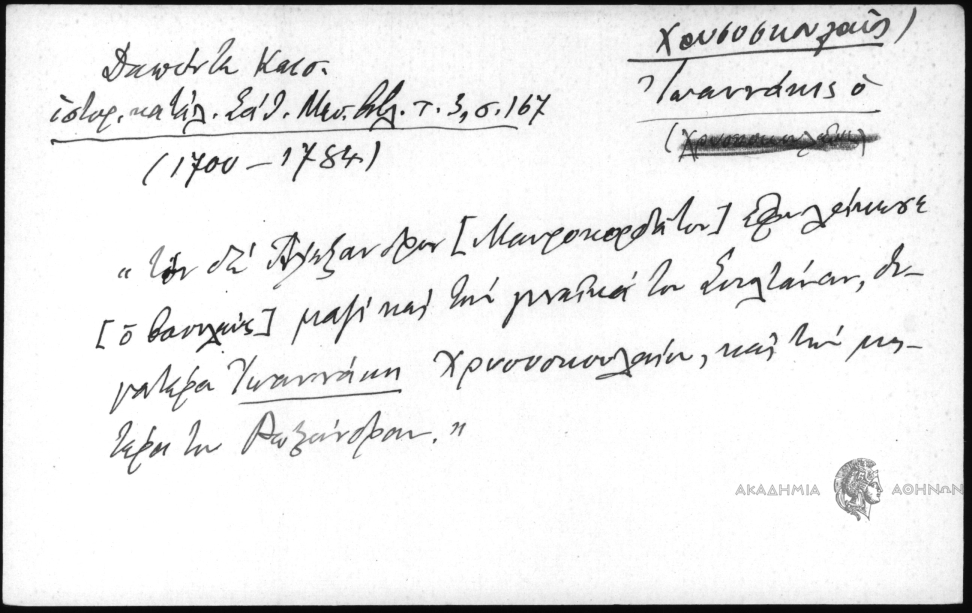 Χρυσοσκουλαῖος)
Δαπόντε Καισ.
Ἰωαννάκης ὁ
ἱστορ. κατάλ. Σάθ. Μεσ. Βιβλ. τ. 3, σ. 167
(1700 – 1784)
"τὸν δὲ Ἀλέξανδρον [Μαυροκορδᾶτον] ἐφυλάκωσε
[ὁ βασιλεὺς] μαζὶ καὶ τὴν γυναῖκά του Σουλτάναν, θυ-
γατέρα Ἰωαννάκη Χρυσοσκουλαίου, καὶ τὴν μη-
τέρα του Ρωξάνδραν."
ΑΚΑΔΗΜΙΑ ΑΘΗΝΩΝ